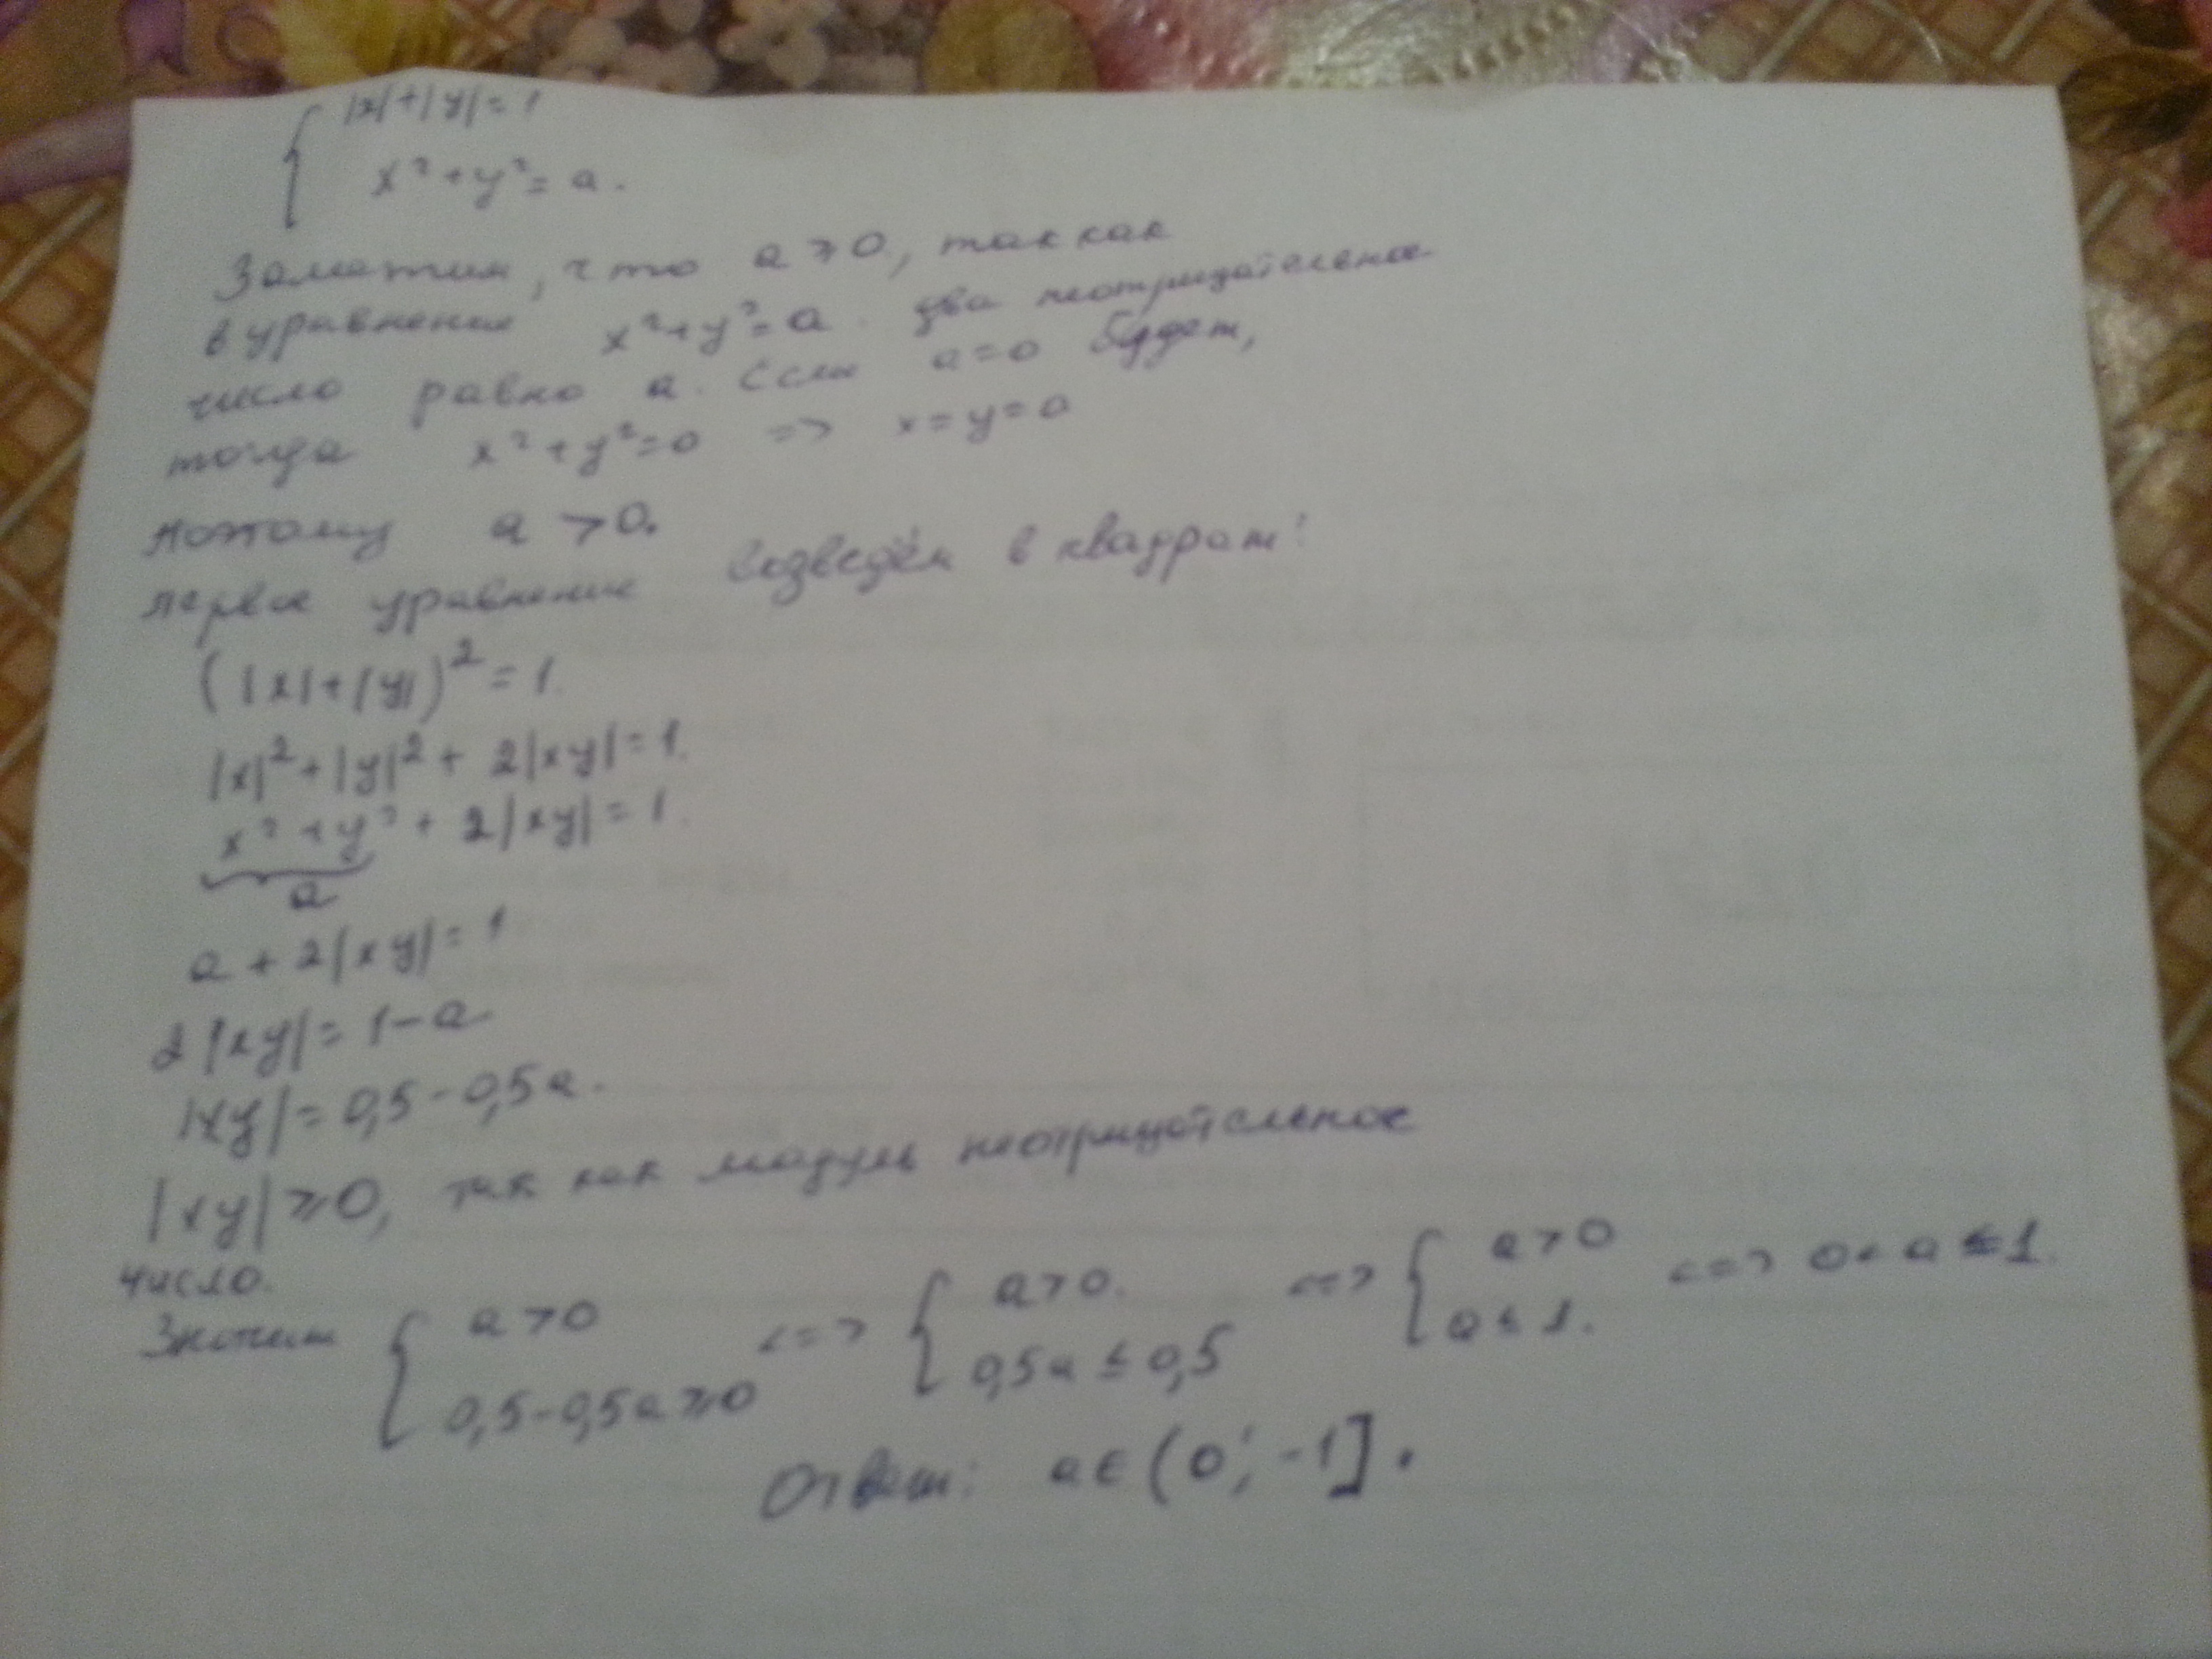 { |x|+|y|=1
x²+y²=a.
Заметим, что a>0, так как
в уравнение x²+y²=a. два неотрицательное
число равно a. Если a=0 будет,
тогда x²+y²=0 => x=y=0
Поэтому a>0.
Первое уравнение возведём в квадрат:
(|x|+|y|)²=1.
|x|²+|y|²+2|xy|=1.
x²+y²+2|xy|=1.
a
a+2|xy|=1
2|xy|=1-a
|xy|=0,5-0,5a.
|xy|≥0, так как модуль неотрицательное
число.
Значит { a>0 0,5-0,5a≥0 <=> { a>0. 0,5a≤0,5 <=> { a>0 a≤1. <=> 0<a≤1.
Ответ: a∈(0;-1].